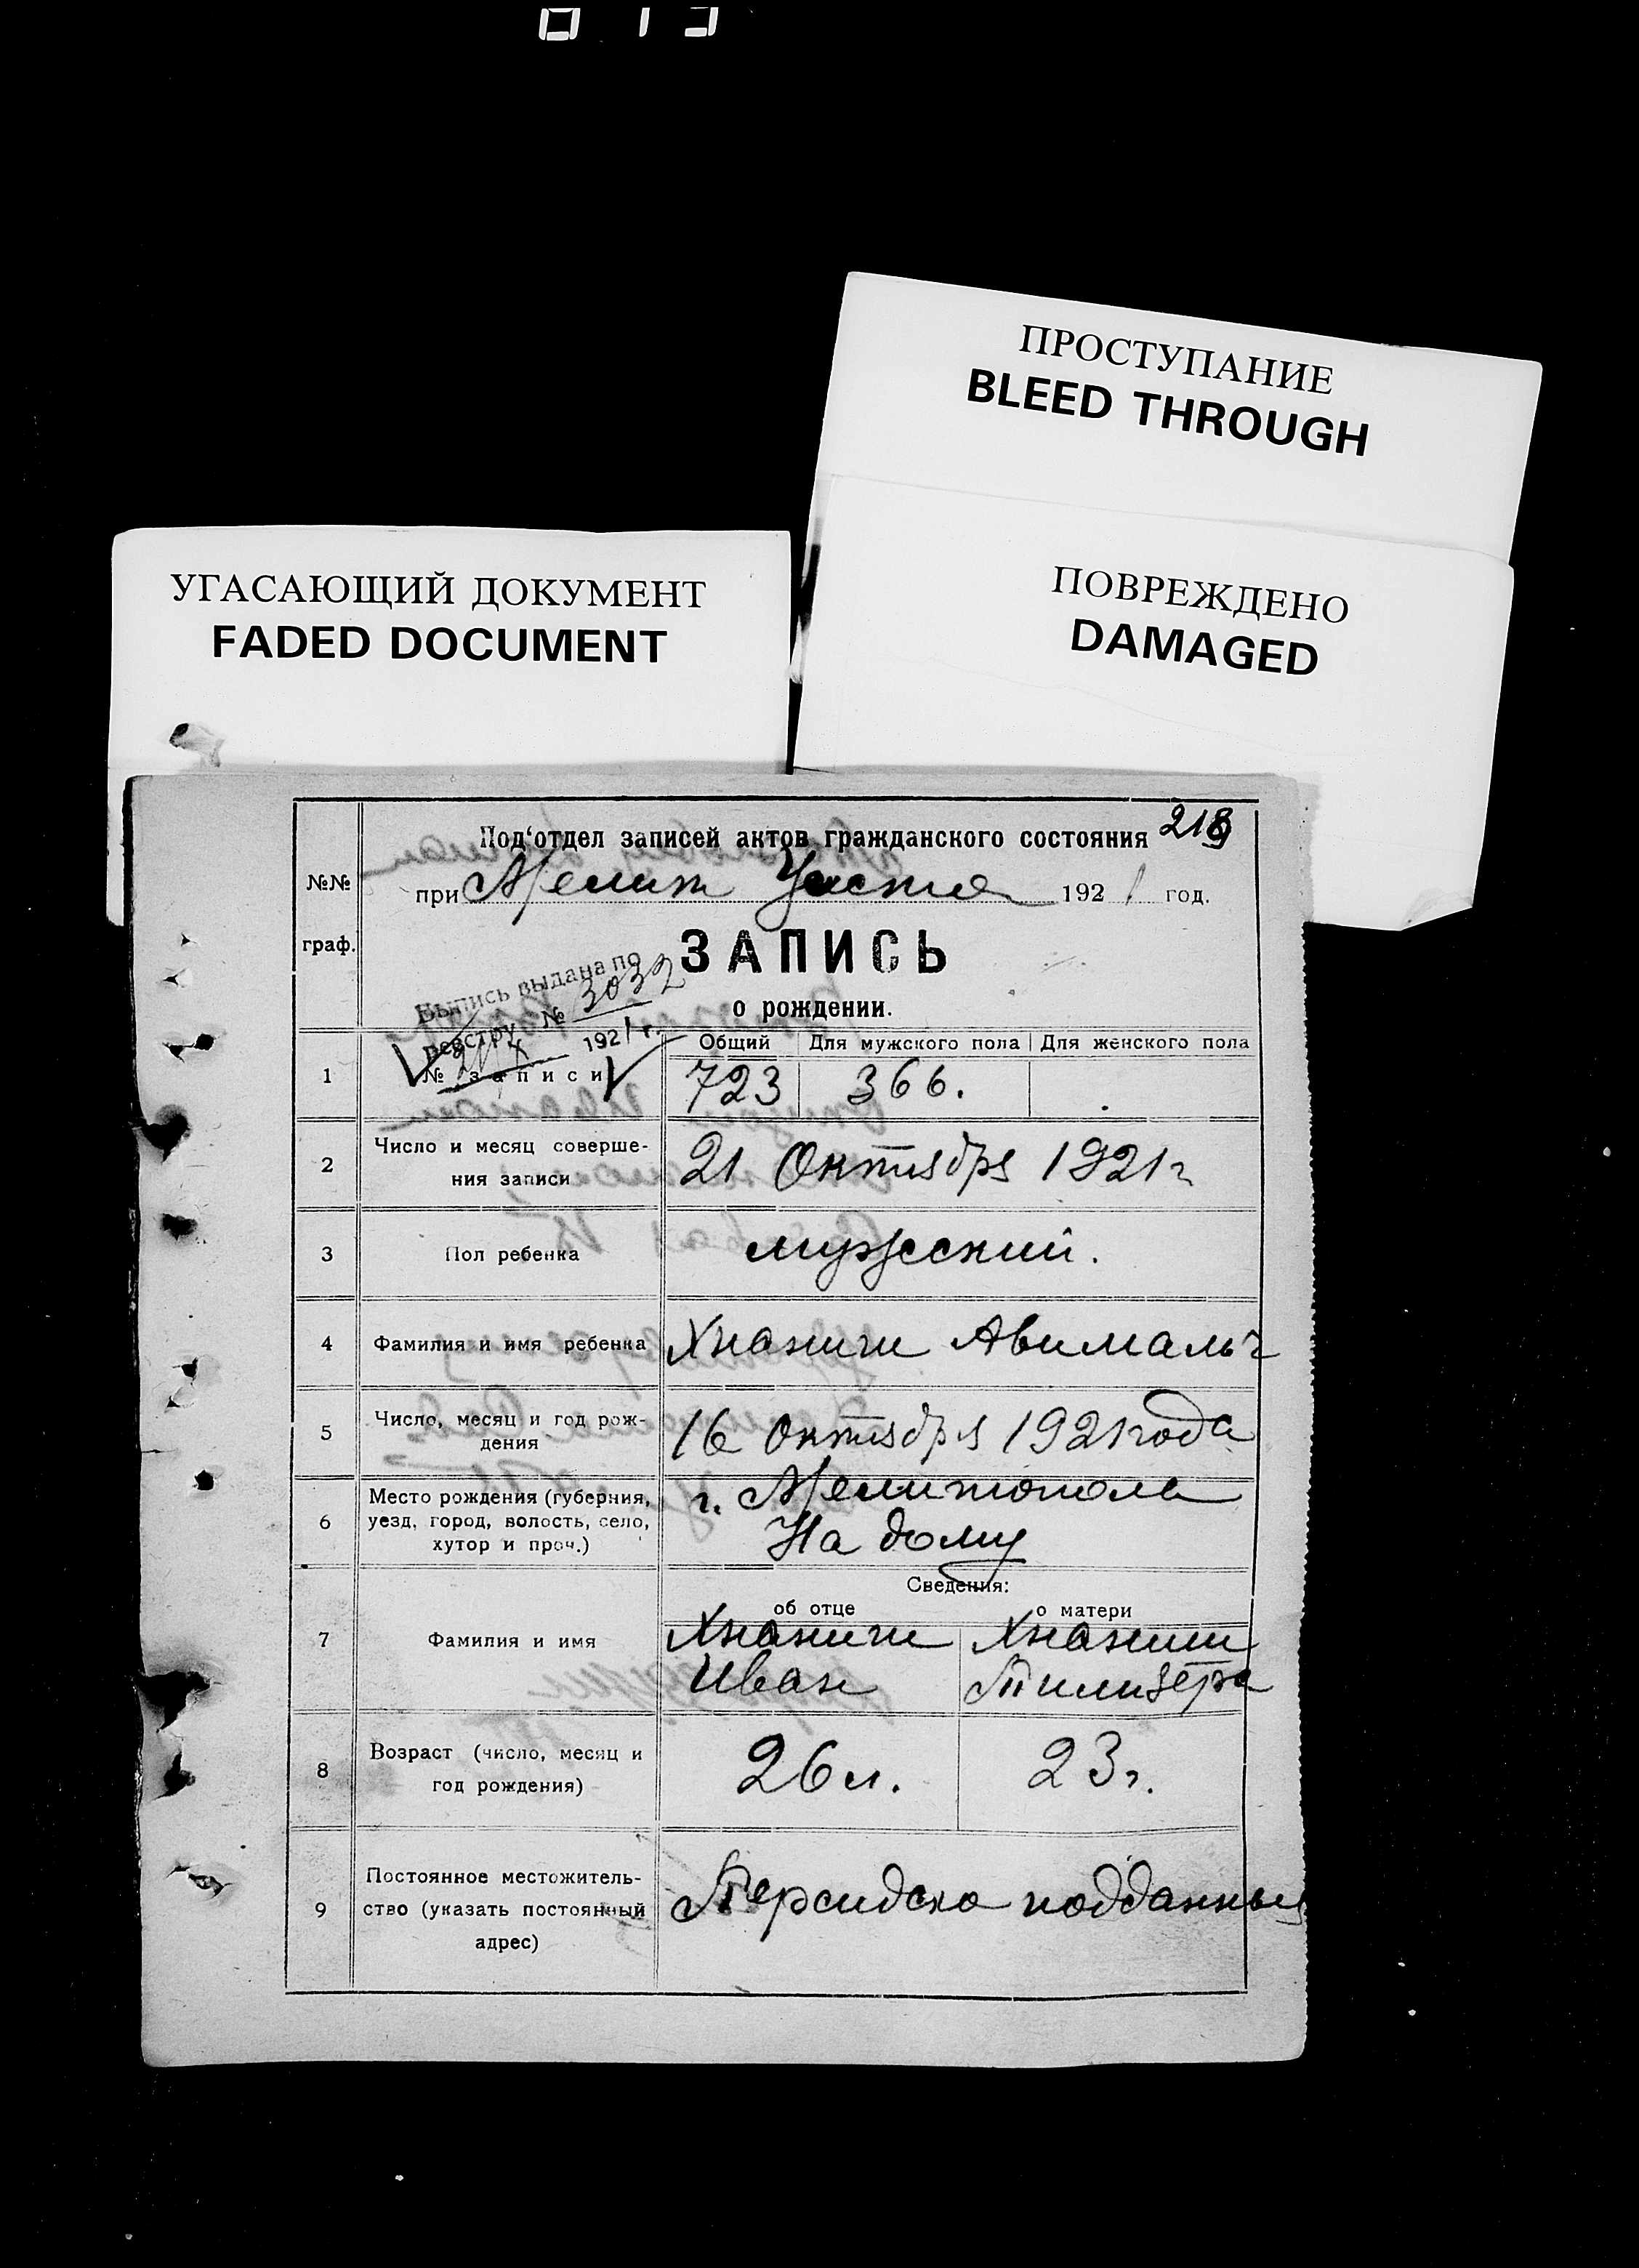 013
ПРОСТУПАНИЕ
BLEED THROUGH
УГАСАЮЩИЙ ДОКУМЕНТ
FADED DOCUMENT
ПОВРЕЖДЕНО
DAMAGED
Под'отдел записей актов гражданского состояния
при Мелит 1921 год.
№№
граф.
ЗАПИСЬ
о рождении.
Выпись выдана по
реестру № 3032
1921 г.
Общий Для мужского пола Для женского пола
1 № записи 723 366.
2 Число и месяц соверше-
ния записи 21 Октября 1921 г
3 Пол ребенка мужеский.
4 Фамилия и имя ребенка Хнаниги
5 Число, месяц и год рож-
дения 16 Октября 1921 года
6 Место рождения (губерния,
уезд, город, волость, село,
хутор и проч.)
г. Мелитополь
На дому
Сведения:
об отце о матери
7 Фамилия и имя
Хнаниги
Иван
8 Возраст (число, месяц и
год рождения) 26 л. 23 г.
9 Постоянное местожитель-
ство (указать постоянный
адрес)
Персидско подданный